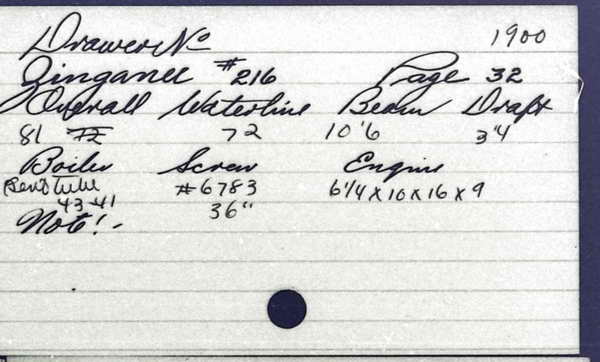 Drawer No 1900
Zinganee #216 Page 32
Overall Waterline Beam Draft
81 72 72 10'6 3'4
Boiler Screw Engine
Bent tube #6783 6 1/4 x 10 x 16 x 9
43-41 36"
Note! -